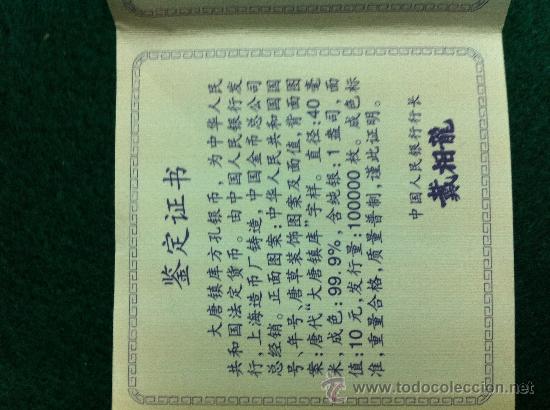 鉴定证书
大唐镇库方孔银币，为中华人民
共和国法定货币。由中国人民银行发
行，上海造币厂铸造，中国金币总公司
总经销。正面图案：中华人民共和国国
号、年号、唐草装饰图案及面值，背面图
案：唐代“大唐镇库”字样。直径：40毫
米，成色：99.9%，含纯银：1盎司，面
值：10元，发行量：100000枚。成色标
准，重量合格，质量普制，谨此证明。
中国人民银行行长
戴相龍
www.todocoleccion.net